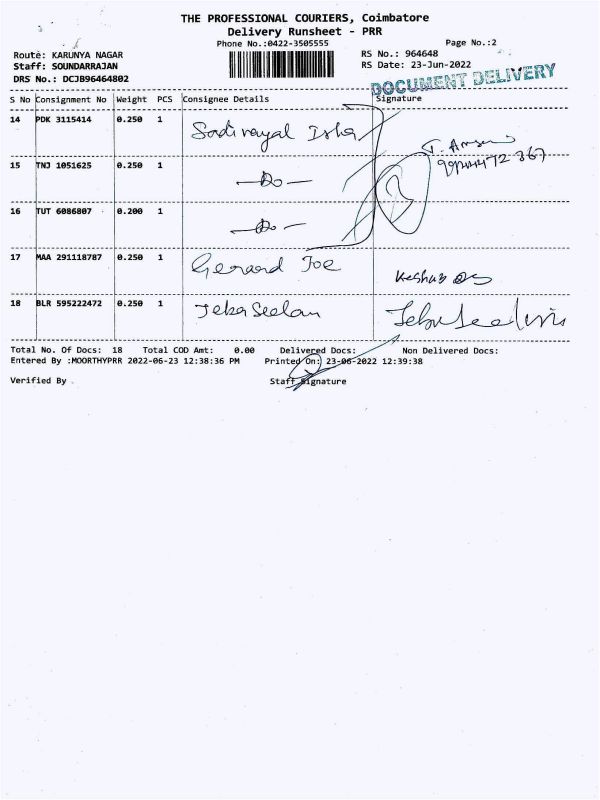 THE PROFESSIONAL COURIERS, Coimbatore
Delivery Runsheet - PRR
Phone No.:0422-3505555
Page No.:2
Route: KARUNYA NAGAR
RS No.: 964648
Staff: SOUNDARRAJAN
RS Date: 23-Jun-2022
DRS No.: DCJB96464802
DOCUMENT DELIVERY
S No Consignment No Weight PCS Consignee Details Signature
14 PDK 3115414 0.250 1
15 TNJ 1051625 0.250 1 -Do-
16 TUT 6086807 0.200 1 -Do-
17 MAA 291118787 0.250 1 Gerard Joe
18 BLR 595222472 0.250 1 Jeba Seelan
Total No. Of Docs: 18 Total COD Amt: 0.00 Delivered Docs: Non Delivered Docs:
Entered By :MOORTHYPRR 2022-06-23 12:38:36 PM Printed On: 23-06-2022 12:39:38
Verified By Staff Signature